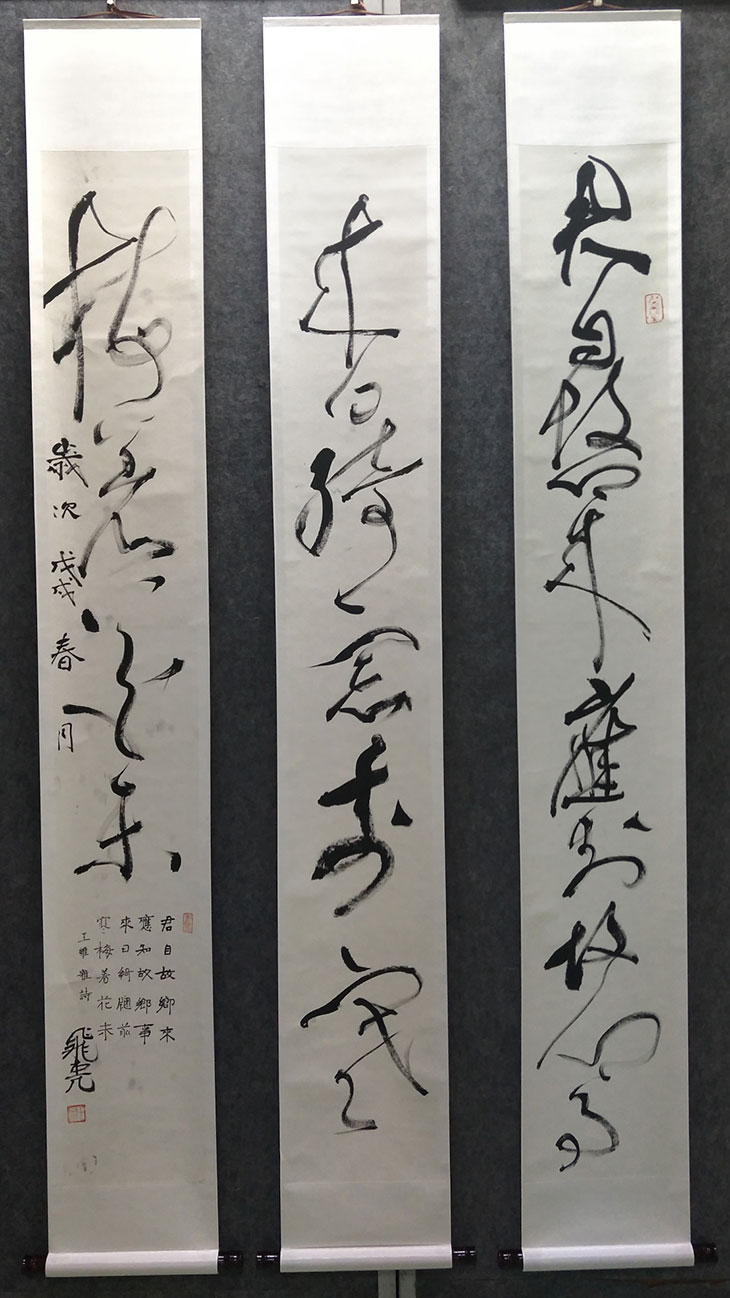 君自故鄉來應知故鄉事
來日綺窗前寒
梅著花未
歲次戊戌春月
君自故鄉來
應知故鄉事
來日綺牕前
寒梅著花未
王維雜詩